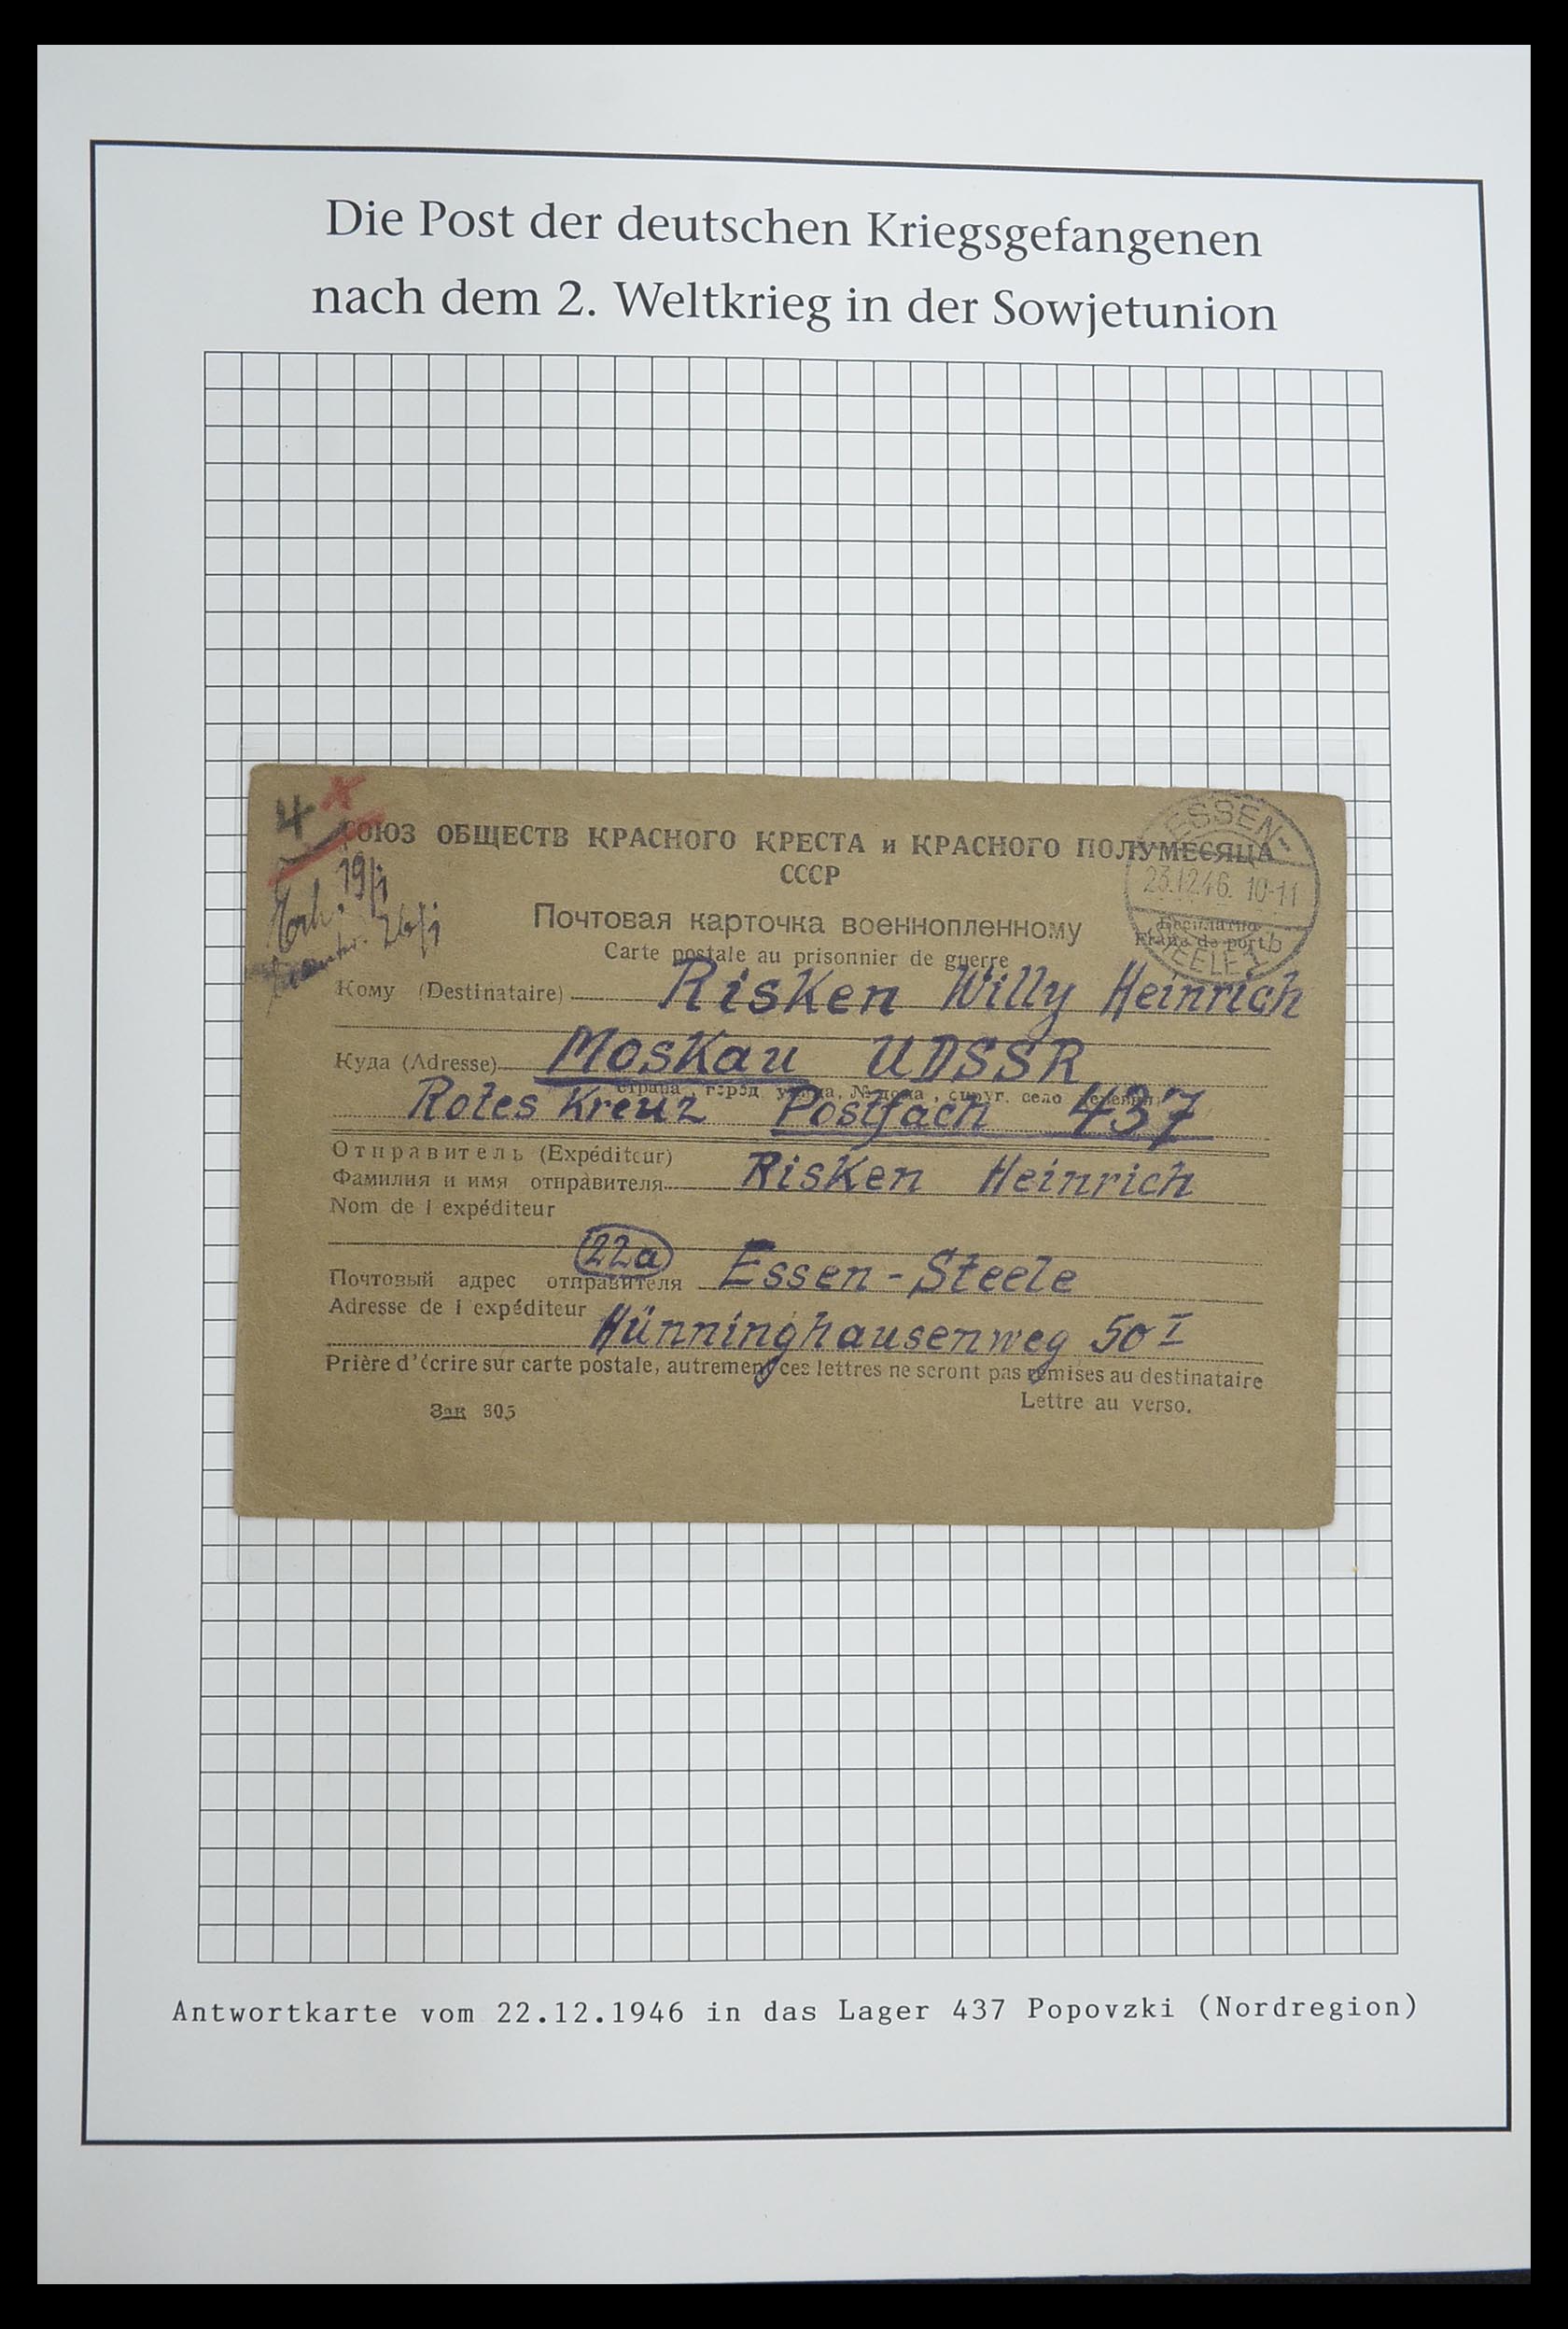 Die Post der deutschen Kriegsgefangenen
nach dem 2. Weltkrieg in der Sowjetunion
4
СОЮЗ ОБЩЕСТВ КРАСНОГО КРЕСТА и КРАСНОГО ПОЛУМЕСЯЦА
СССР
ESSEN-
23.12.46. 10-11
STEELE 1
b
19/1
26/1
Почтовая карточка военнопленному
Бесплатно
Franc de port
Carte postale au prisonnier de guerre
Кому (Destinataire) Risken Willy Heinrich
Куда (Adresse) Moskau UDSSR
страна, город, улица, № дома, округ, село деревня
Rotes Kreuz Postfach 437
Отправитель (Expéditeur)
Фамилия и имя отправителя Risken Heinrich
Nom de l expéditeur
22a
Почтовый адрес отправителя Essen-Steele
Adresse de l expéditeur
Hünninghausenweg 50 I
Prière d'écrire sur carte postale, autrement ces lettres ne seront pas remises au destinataire
Lettre au verso.
Зак 305
Antwortkarte vom 22.12.1946 in das Lager 437 Popovzki (Nordregion)